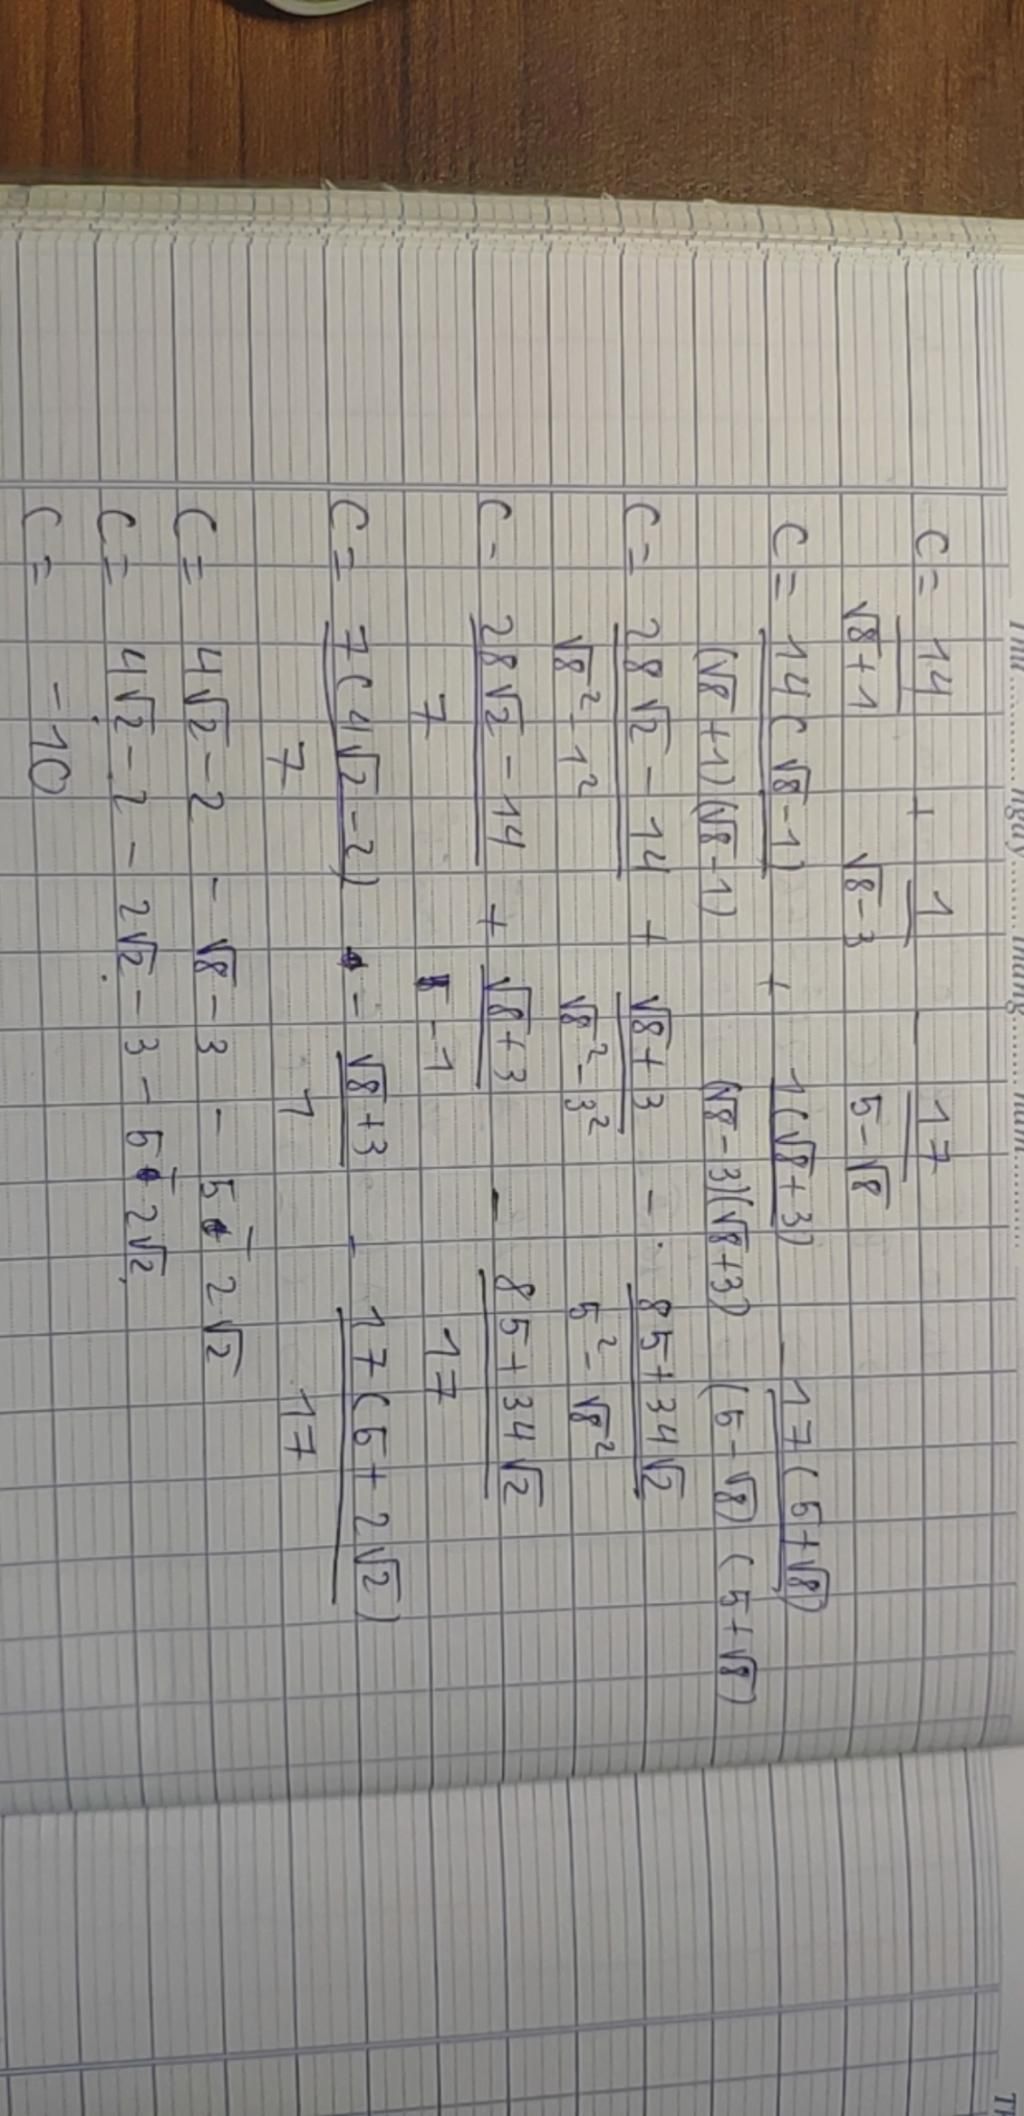 Thứ ........ ngày ........ tháng ........ năm ........
C = 14/(√8 + 1) + 1/(√8 - 3) - 17/(5 - √8)
C = 14(√8 - 1)/((√8 + 1)(√8 - 1)) + 1(√8 + 3)/((√8 - 3)(√8 + 3)) - 17(5 + √8)/((5 - √8)(5 + √8))
C = (28√2 - 14)/(√8² - 1²) + (√8 + 3)/(√8² - 3²) - (85 + 34√2)/(5² - √8²)
C = (28√2 - 14)/7 + (√8 + 3)/-1 - (85 + 34√2)/17
C = 7(4√2 - 2)/7 - (√8 + 3)/1 - 17(5 + 2√2)/17
C = 4√2 - 2 - √8 - 3 - 5 - 2√2
C = 4√2 - 2 - 2√2 - 3 - 5 - 2√2
C = -10